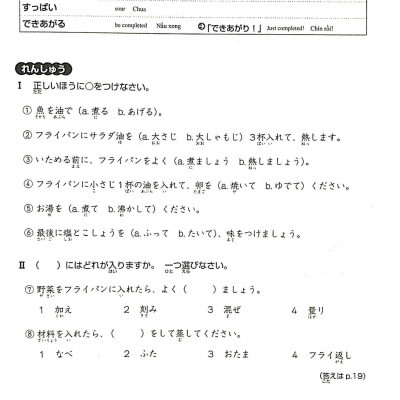 すっぱい sour Chua
できあがる be completed Nấu xong ➲「できあがり！」 Just completed! Chín rồi!
れんしゅう
Ⅰ 正しいほうに○をつけなさい。
① 魚を油で（a.煮る b.あげる）。
② フライパンにサラダ油を（a.大さじ b.大しゃもじ）3杯入れて、熱します。
③ いためる前に、フライパンをよく（a.煮ましょう b.熱しましょう）。
④ フライパンに小さじ1杯の油を入れて、卵を（a.焼いて b.ゆでて）ください。
⑤ お湯を（a.煮て b.沸かして）ください。
⑥ 最後に塩とこしょうを（a.ふって b.たいて）、味をつけましょう。
Ⅱ （ ）にはどれが入りますか。 一つ選びなさい。
⑦ 野菜をフライパンに入れたら、よく（ ）ましょう。
1 加え 2 刻み 3 混ぜ 4 量り
⑧ 材料を入れたら、（ ）をして蒸してください。
1 なべ 2 ふた 3 おたま 4 フライ返し
（答えは p.19）